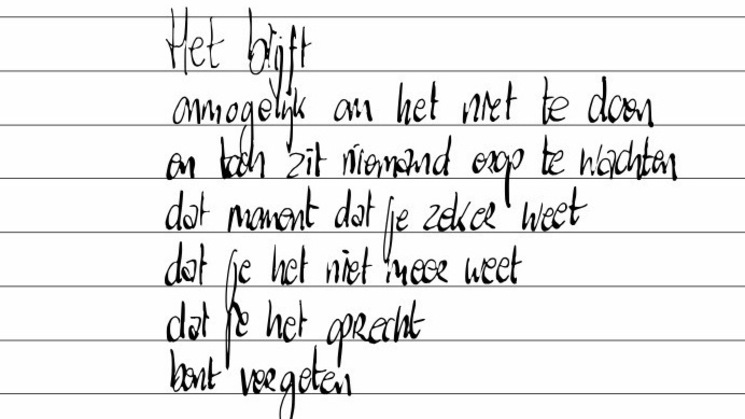 Het blijft
onmogelijk om het niet te doen
en toch zit niemand erop te wachten
dat moment dat je zeker weet
dat je het niet meer weet
dat je het oprecht
bent vergeten